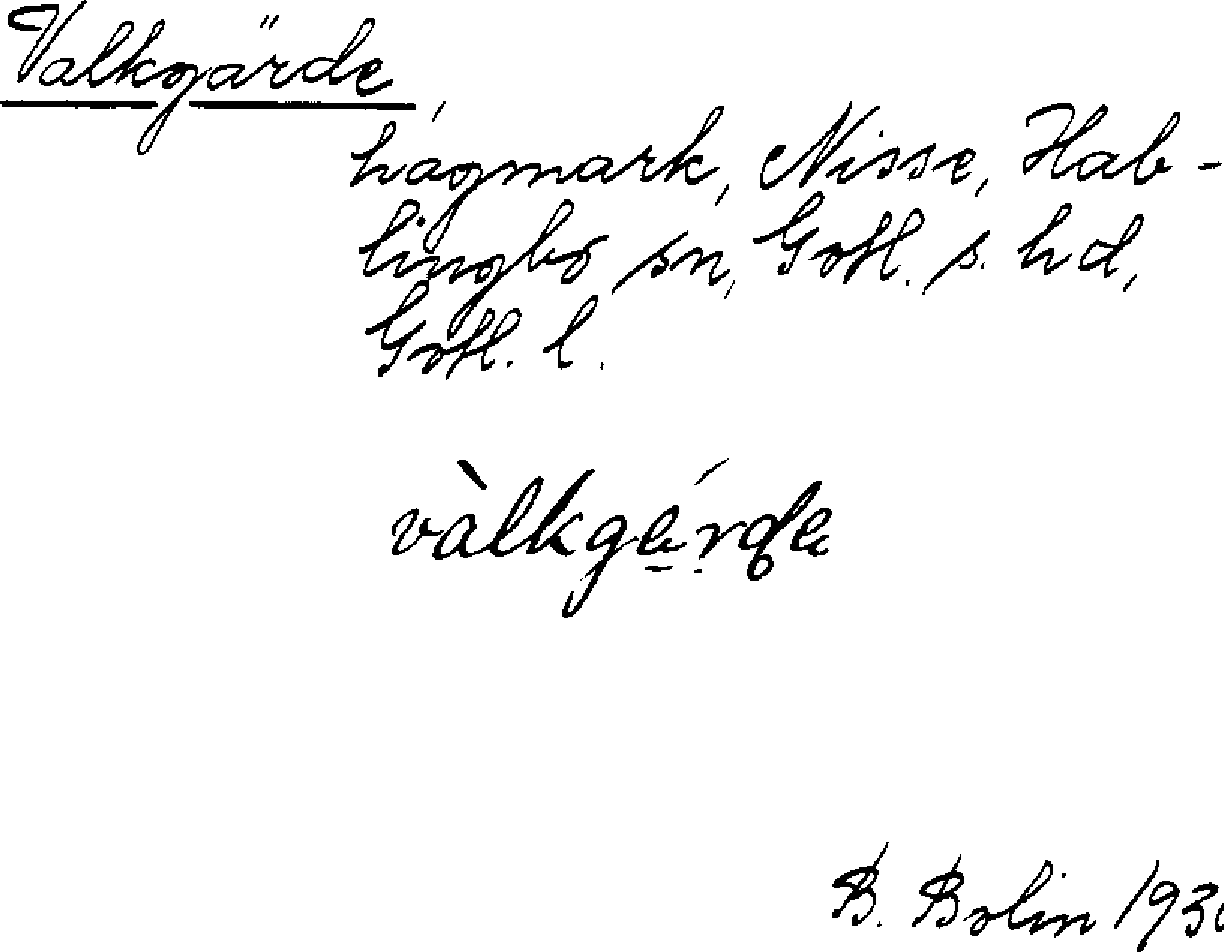 Valkgärde,
hagmark, Nisse, Hab-
lingbo sn, Gotl. s. hd,
Gotl. l.
B. Bolin